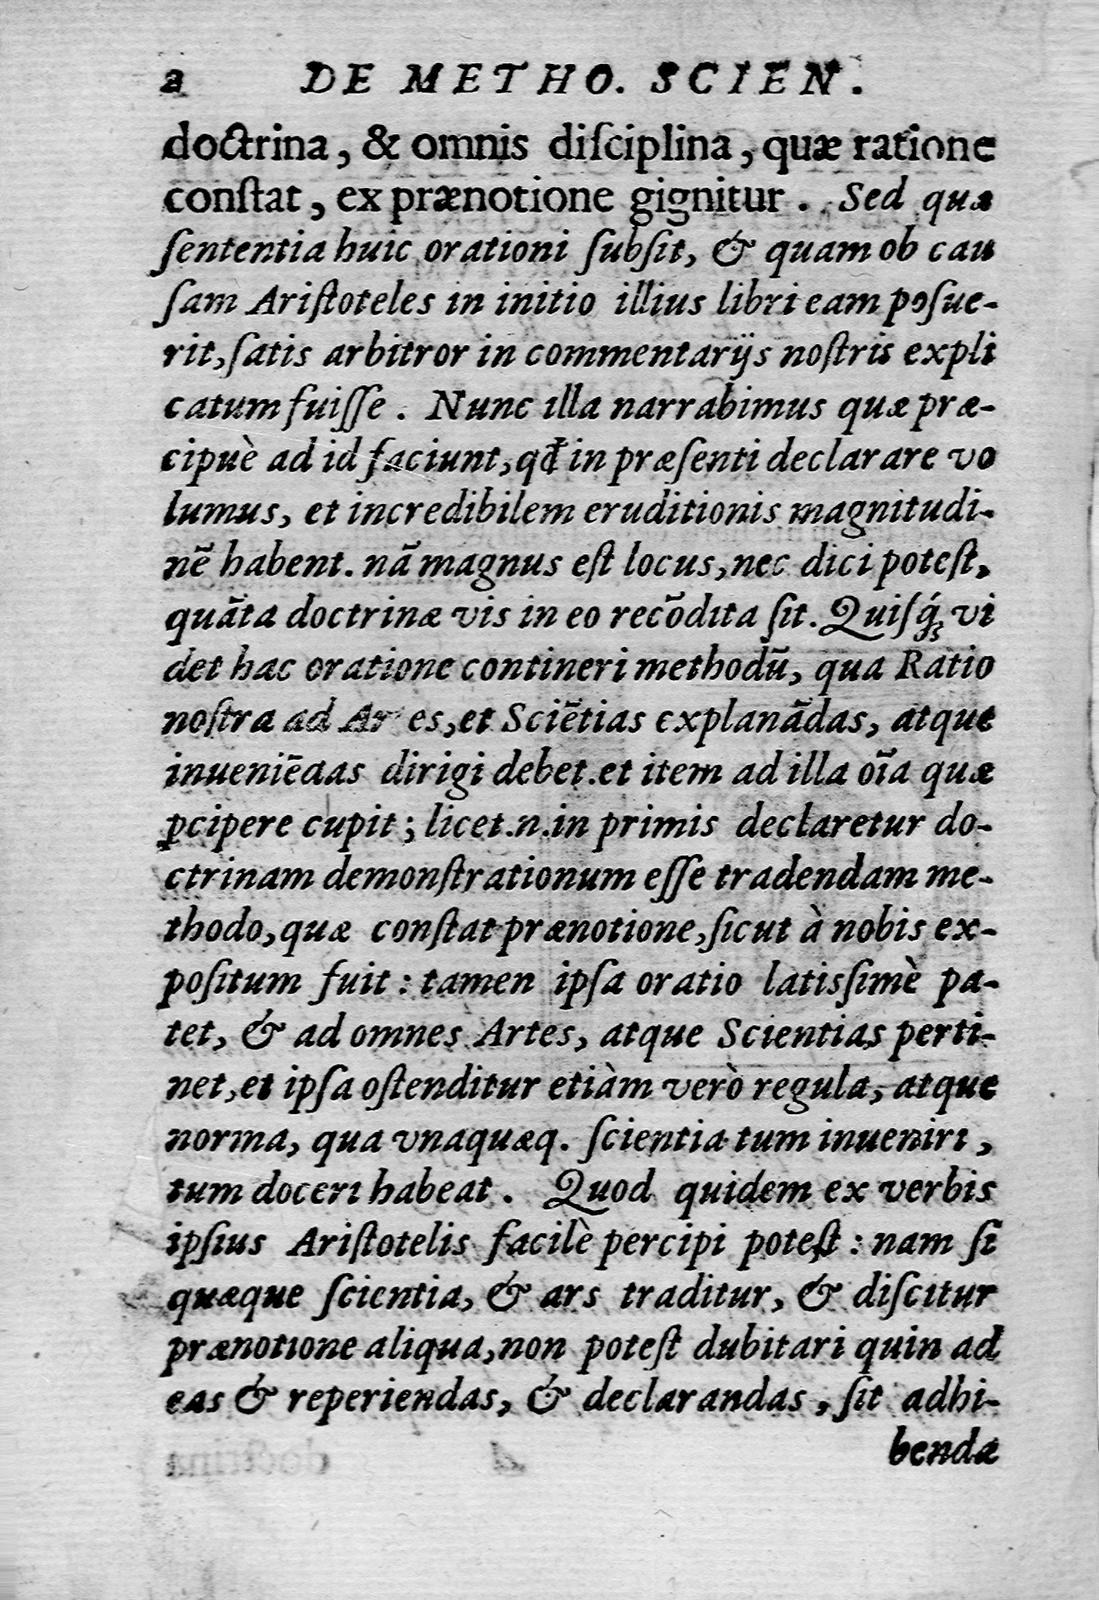 2 DE METHO. SCIEN.
doctrina, & omnis diſciplina, quæ ratione
conſtat, ex prænotione gignitur. Sed quæ
ſententia huic orationi ſubſit, & quam ob cau
ſam Ariſtoteles in initio illius libri eam poſue-
rit, ſatis arbitror in commentarijs noſtris expli
catum fuiſſe. Nunc illa narrabimus quæ præ-
cipuè ad id faciunt, qđ in præſenti declarare vo
lumus, et incredibilem eruditionis magnitudi-
nē habent. nā magnus eſt locus, nec dici poteſt,
quāta doctrinæ vis in eo recōdita ſit. Quiſq́; vi
det hac oratione contineri methodū, qua Ratio
noſtra ad Ar es, et Sciētias explanādas, atque
inueniēdas dirigi debet. et item ad illa oīa quæ
ꝑcipere cupit; licet .n. in primis declaretur do-
ctrinam demonſtrationum eſſe tradendam me-
thodo, quæ conſtat prænotione, ſicut à nobis ex-
poſitum fuit: tamen ipſa oratio latisſimè pa-
tet, & ad omnes Artes, atque Scientias perti-
net, et ipſa oſtenditur etiàm verò regula, atque
norma, qua vnaquæq. ſcientia tum inueniri,
tum doceri habeat. Quod quidem ex verbis
ipſius Ariſtotelis facilè percipi poteſt: nam ſi
quæque ſcientia, & ars traditur, & diſcitur
prænotione aliqua, non poteſt dubitari quin ad
eas & reperiendas, & declarandas, ſit adhi-
bendæ